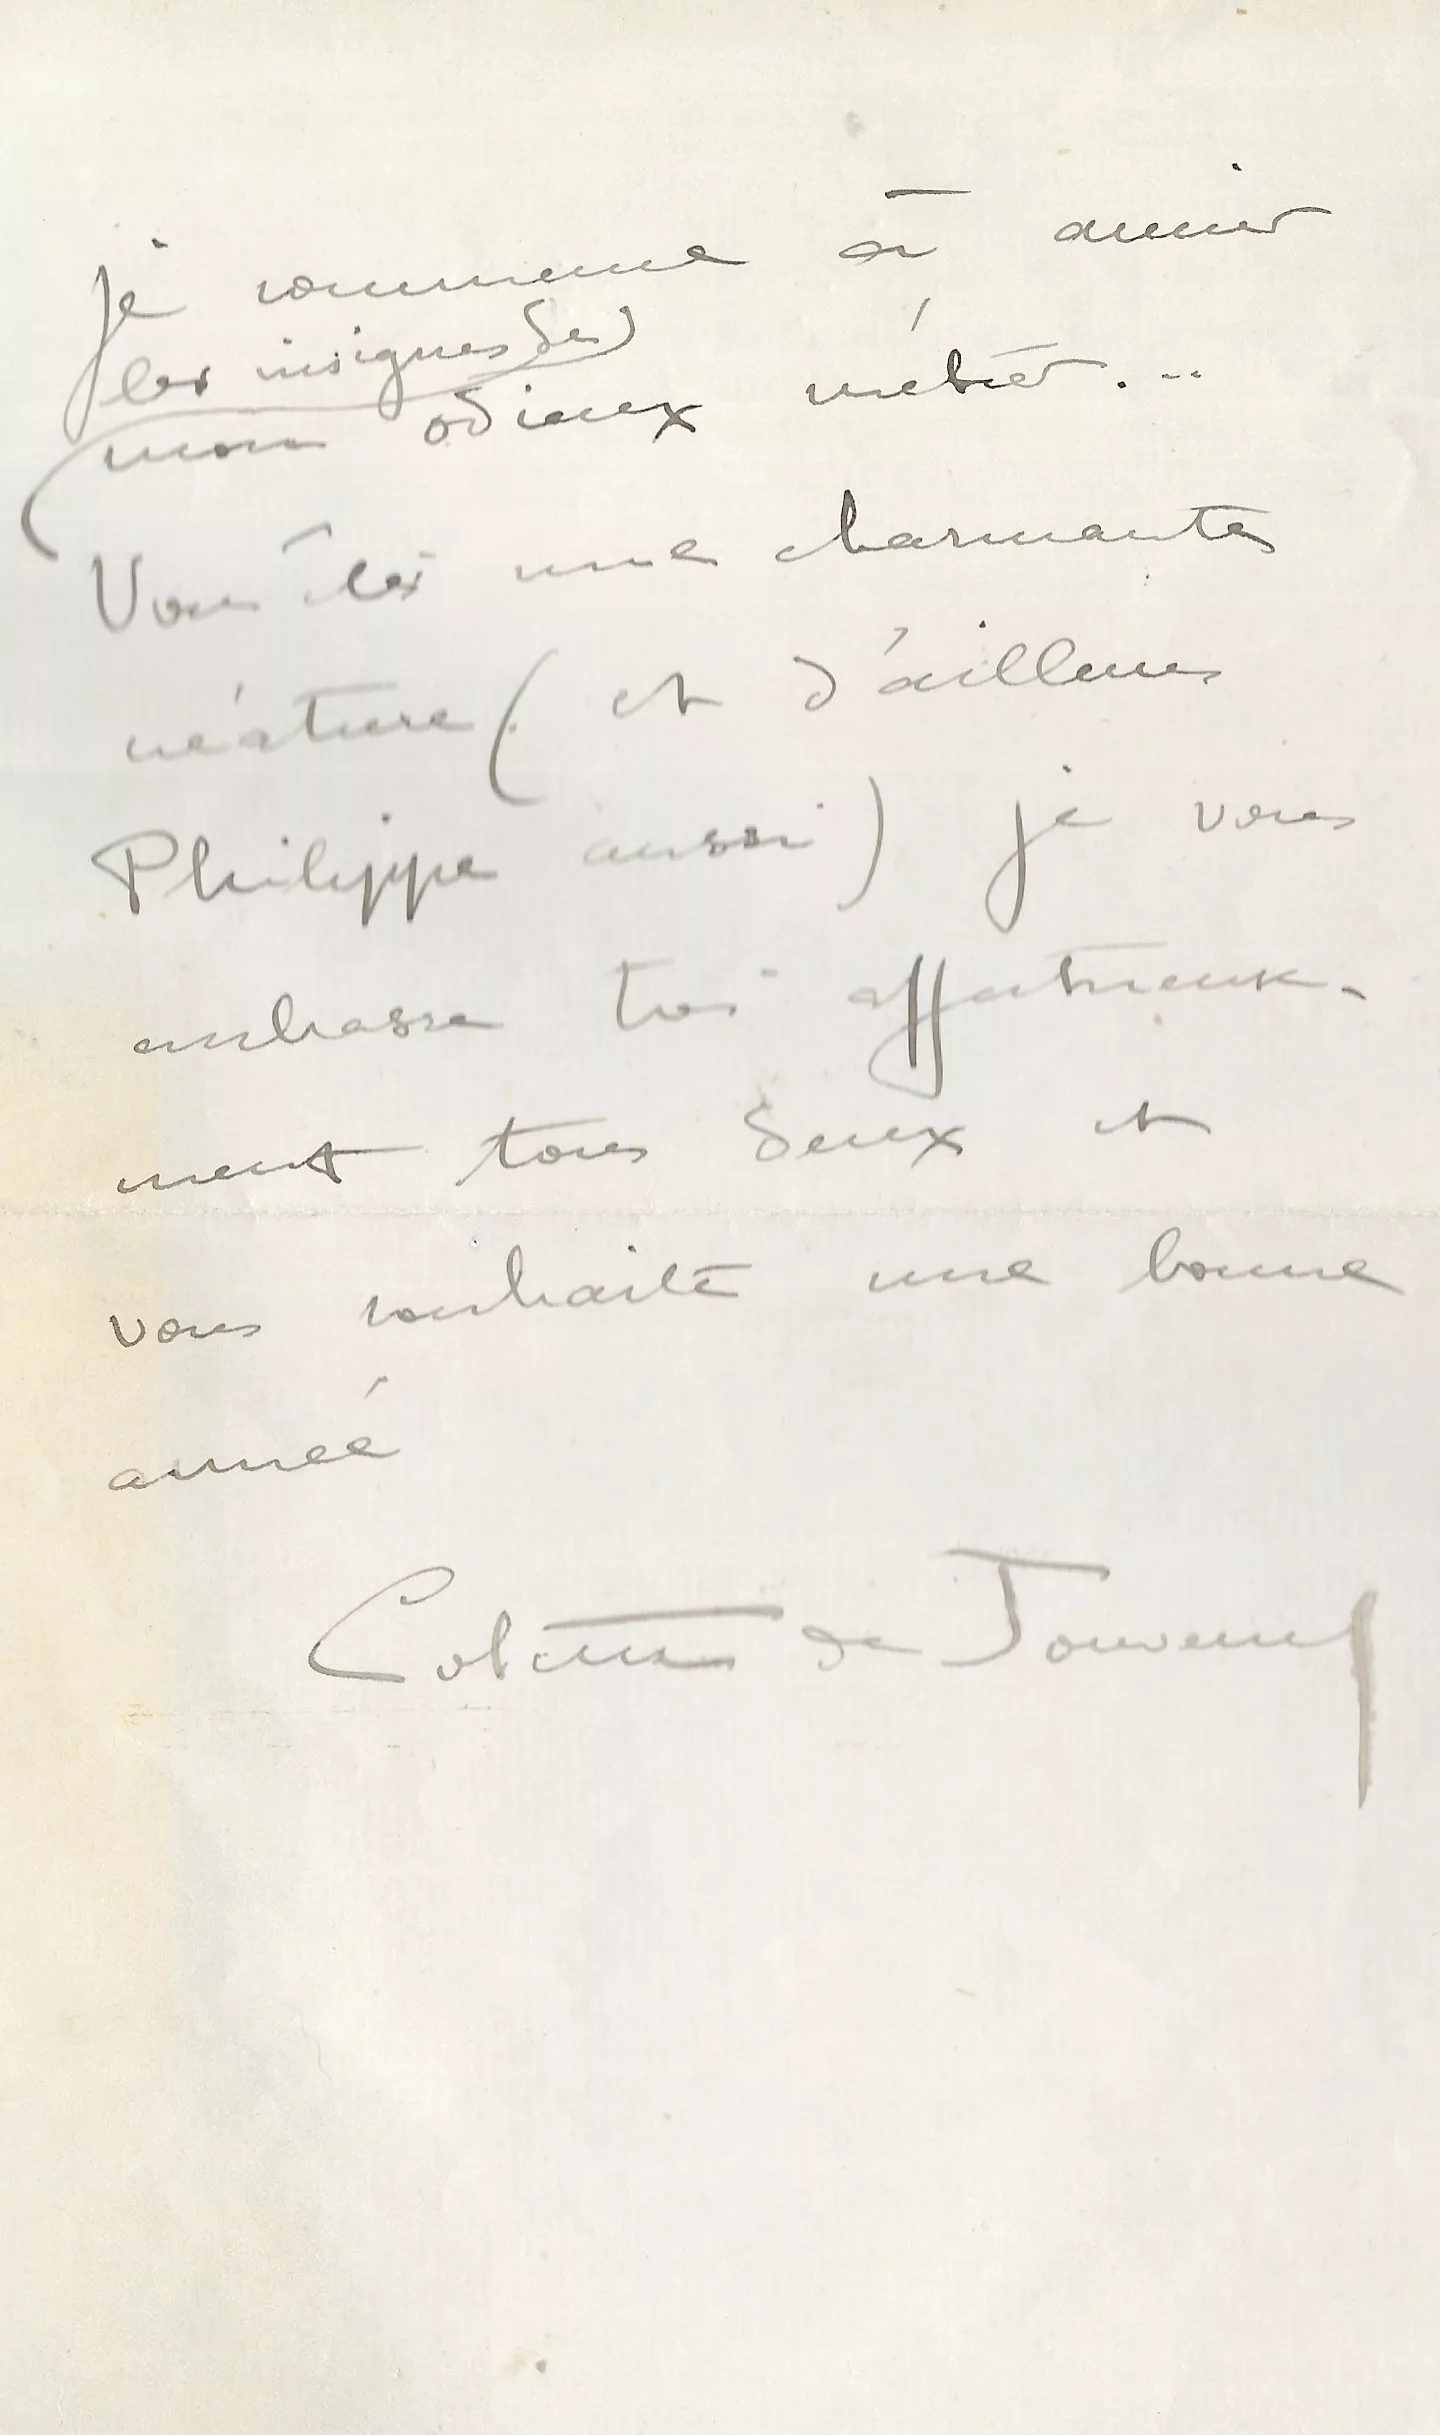 je commence à aimer
les insignes de
mon odieux métier...
Vous êtes une charmante
créature (et d'ailleurs
Philippe aussi) je vous
embrasse très affectueuse-
ment tous deux et
vous souhaite une bonne
année
Colette de Jouvenel